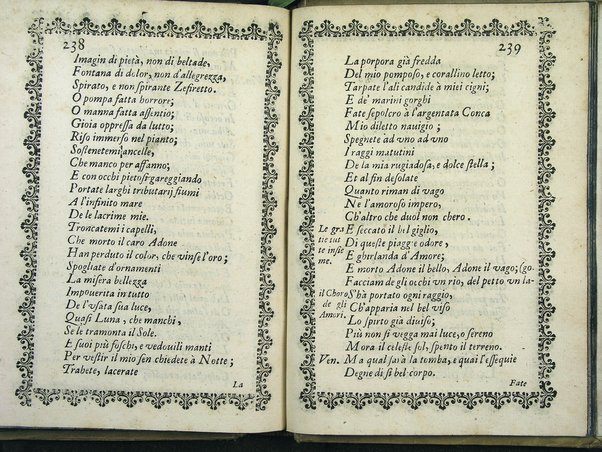 238
Imagin di pietà, non di beltade,
Fontana di dolor, non d'allegrezza,
Spirato, e non spirante Zefiretto.
O pompa fatta horrore;
O manna fatta assentio;
Gioia oppressa da lutto;
Riso immerso nel pianto;
Sostenetemi ancelle,
Che manco per affanno;
E con occhi pietosi gareggiando
Portate larghi tributarij fiumi
A l'infinito mare
De le lacrime mie.
Troncatemi i capelli,
Che morto il caro Adone
Han perduto il color, che vinse l'oro;
Spogliate d'ornamenti
La misera bellezza
Impouerita in tutto
De l'vsata sua luce,
Quasi Luna, che manchi,
Se le tramonta il Sole.
E suoi più foschi, e vedouili manti
Per vestir il mio sen chiedete à Notte;
Trahete, lacerate
La
239
La porpora già fredda
Del mio pomposo, e corallino letto;
Tarpate l'ali candide à miei cigni;
E de' marini gorghi
Fate sepolcro à l'argentata Conca
Mio diletto nauigio;
Spegnete ad vno ad vno
I raggi matutini
De la mia rugiadosa, e dolce stella;
Et al fin desolate
Quanto riman di vago
Ne l'amoroso impero,
Ch'altro che duol non chero.
Le gratie tutte insieme. E seccato il bel giglio,
Di queste piagge odore,
E ghirlanda d'Amore;
E morto Adone il bello, Adone il vago; (go.
Facciam de gli occhi vn rio, del petto vn la-
il Choro de gli Amori. S'hà portato ogni raggio,
Ch'apparia nel bel viso
Lo spirto già diuiso;
Più non si vegga mai luce, o sereno
Mora il celeste sol, spento il terreno.
Ven. Ma qual sarà la tomba, e quai l'essequie
Degne di si bel corpo.
Fate